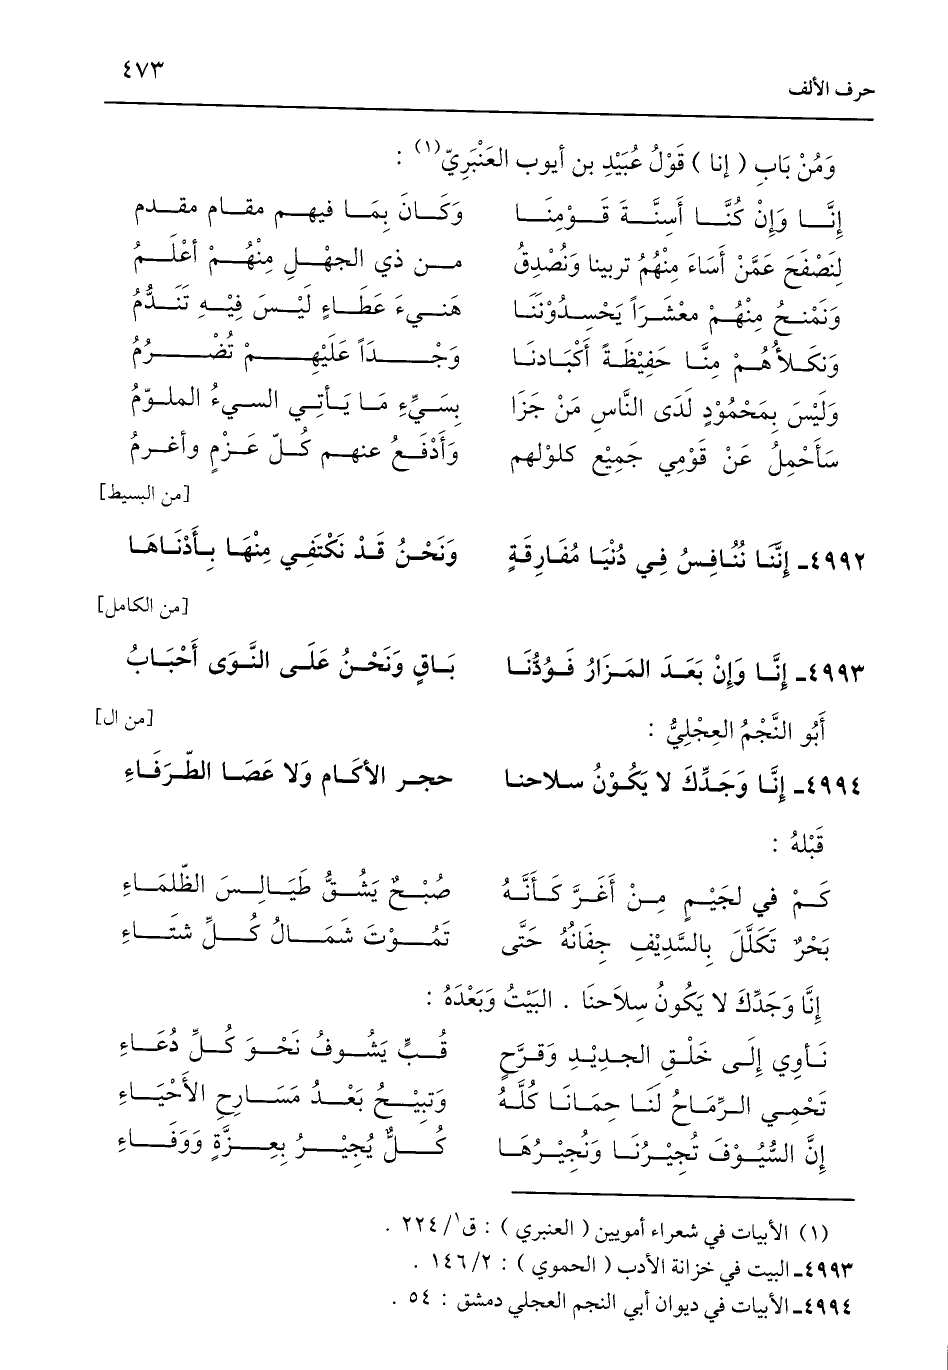 ٤٧٣
حرف الألف
وَمُنْ بَابِ ( إنا ) قَوْلُ عُبَيْدِ بن أيوب العَنْبَرِيّ(١) :
إنَّا وَإنْ كُنَّا أَسِنَّةَ قَوْمِنَا وَكَانَ بِمَا فيهم مقام مقدم
لِنَصْفَحَ عَمَّنْ أَسَاءَ مِنْهُمُ تربينا وَنُصْدِقُ من ذي الجهْلِ مِنْهُمْ أعْلَمُ
وَنَمْنحُ مِنْهُمْ مَعْشَرَاً يَحْسِدُوْنَنَا هَنيءَ عَطَاءٍ لَيْسَ فِيْهِ تَنَدُّمُ
وَنَكَلأُهُمْ مِنَّا حَفِيْظَةً أَكْبَادنَا وَجْدَاً عَلَيْهِمْ تُضْرُمُ
وَلَيْسَ بِمَحْمُوْدٍ لَدَى النَّاسِ مَنْ جَزَا بِسَيِّءِ مَا يَأتي السيءُ الملوّمُ
سَأَحْمِلُ عَنْ قَوْمِي جَمِيْع كلولهم وَأَدْفَعُ عنهم كُلّ عَزْمٍ وأغرمُ
[من البسيط]
٤٩٩٢ـ إنَّنَا نُنَافِسُ فِي دُنْيَا مُفَارِقَةٍ وَنَحْنُ قَدْ نَكْتَفِي مِنْهَا بِأَدْنَاهَا
[من الكامل]
٤٩٩٣ـ إنَّا وَإنْ بَعَدَ المَزَارُ فَوُدُّنَا بَاقٍ وَنَحْنُ عَلَى النَّوَى أَحْبَابُ
[من ال]
أَبُو النَّجْمُ العِجْلِيُّ :
٤٩٩٤ـ إنَّا وَجَدِّكَ لا يَكُوْنُ سلاحنا حجر الأكَام وَلا عَصَا الطَّرفَاءِ
قَبْلهُ :
كَمْ في لجَيْمٍ مِنْ أَغَرَّ كَأَنَّهُ صُبْحٌ يَشُقُّ طَيَالِسَ الظَّلمَاءِ
بَحْرٌ تَكَلَّلَ بِالسَّدِيْفِ جِفَانُهُ حَتَّى تَمُوْتَ شَمَالُ كُلِّ شَتَاءِ
إنَّا وَجَدِّكَ لا يَكُونُ سِلاَحنَا . البَيْتُ وَبَعْدَهُ :
نَأوِي إلَى خَلْقِ الحدِيْدِ وَقرَّحٍ قُبٍّ يَشُوفُ نَحْوَ كُلِّ دُعَاءِ
تَحْمِي الرِّمَاحُ لنَا حِمَانَا كُلَّهُ وَتبِيْحُ بَعْدُ مَسَارح الأَحْيَاءِ
إنَّ السُّيُوْفَ تُجِيْرُنَا وَنُجِيْرُهَا كُلٌّ يُجِيْرُ بِعِزَّةٍ وَوَفَاءِ
(١) الأبيات في شعراء أمويين ( العنبري ) : ق١/ ٢٢٤ .
٤٩٩٣ـ البيت في خزانة الأدب ( الحموي ) : ٢/ ١٤٦ .
٤٩٩٤ـ الأبيات في ديوان أبي النجم العجلي دمشق : ٥٤ .